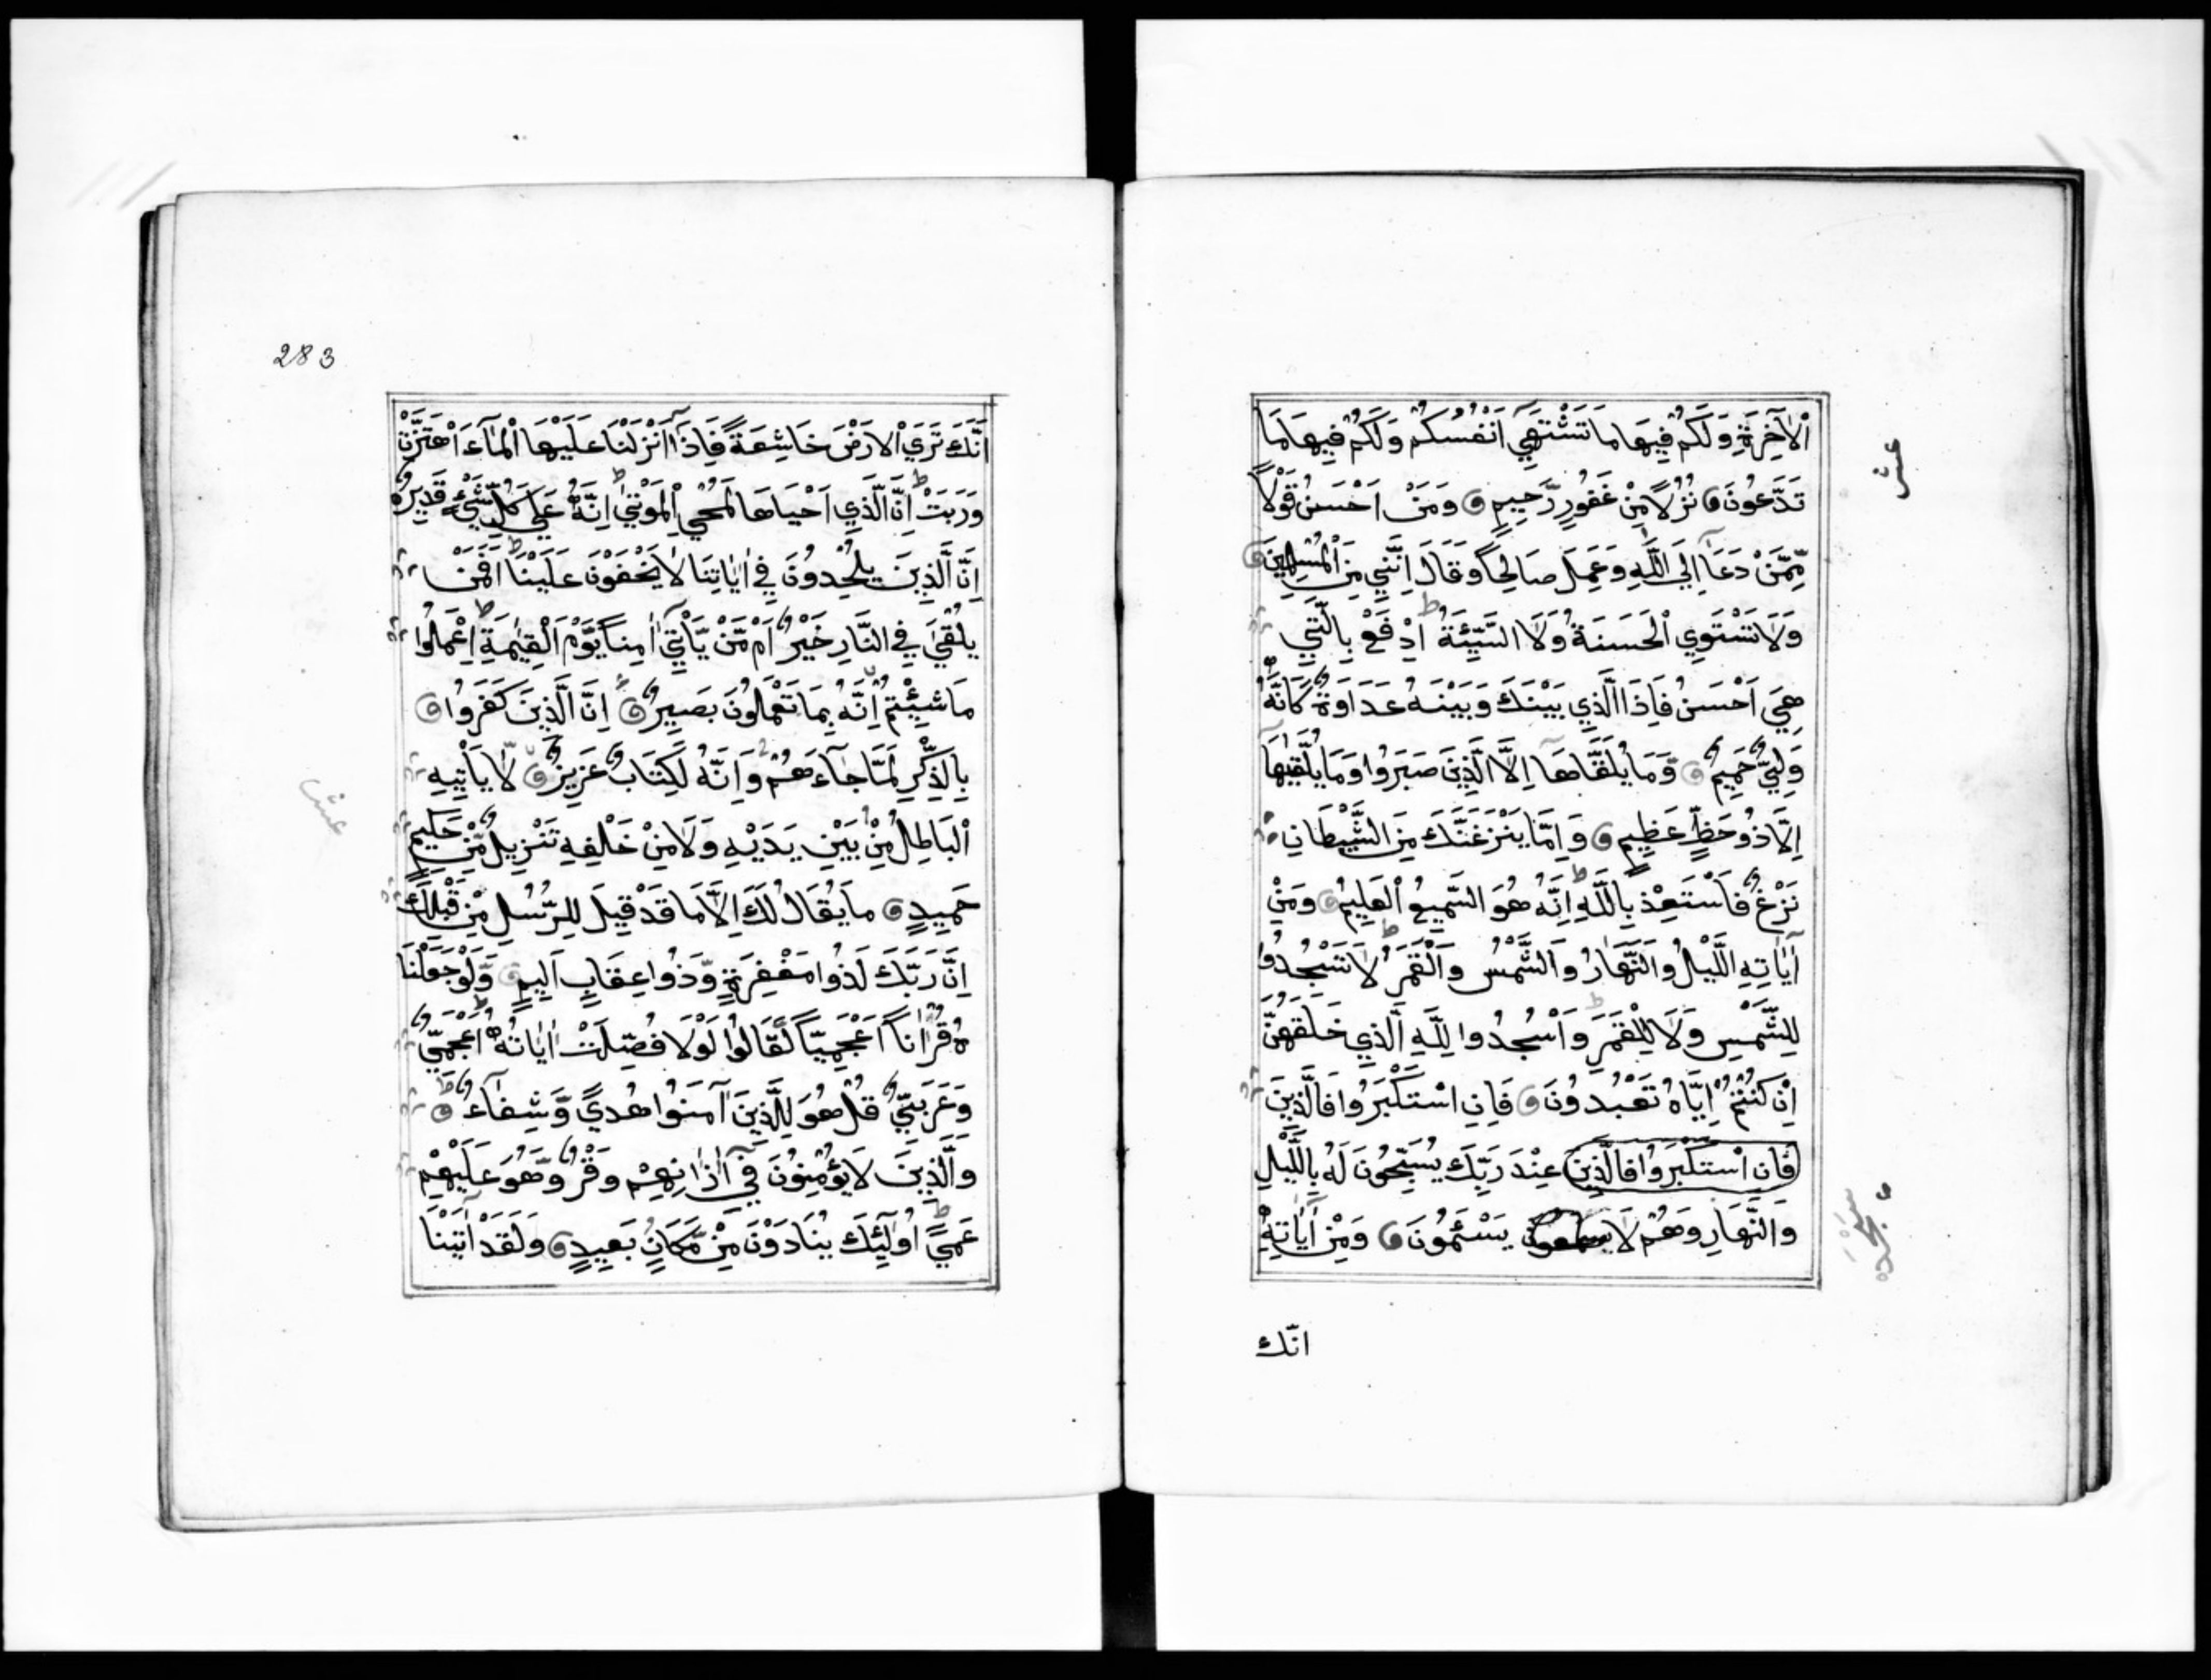 اْلاٰخِرَةِ وَلَكُمْ فِيهَا مَا تَشْتَهِيٓ اَنْفُسُكُمْ وَلَكُمْ فِيهَا مَا
تَدَّعُونَ نُزُلًا مِّنْ غَفُورٍ رَّحِيمٍ وَمَنْ اَحْسَنُ قَوْلًا
مِّمَّنْ دَعَآ اِلَي اللَّهِ وَعَمِلَ صَالِحًا وَقَالَ اِنَّنِي مِنَ اْلمُسْلِمِينَ
وَلَا تَسْتَوِي اْلحَسَنَةُ وَلَا السَّيِّئَةُ ط اِدْفَعْ بِالَّتِي
هِيَ اَحْسَنُ فَاِذَا الَّذِي بَيْنَكَ وَبَيْنَهُ عَدَاوَةٌ كَاَنَّهُ
وَلِيٌّ حَمِيمٌ وَمَا يُلَقَّاهَآ اِلَّا الَّذِينَ صَبَرُوا وَمَا يُلَقّٰيهَآ
اِلَّا ذُو حَظٍّ عَظِيمٍ وَاِمَّا يَنْزَغَنَّكَ مِنَ الشَّيْطَانِ
نَزْغٌ فَاسْتَعِذْ بِاللَّهِ ط اِنَّهُ هُوَ السَّمِيعُ اْلعَلِيمُ وَمِنْ
اٰيَاتِهِ اللَّيْلُ وَالنَّهَارُ وَالشَّمْسُ وَاْلقَمَرُ ط لَا تَسْجُدُوا
لِلشَّمْسِ وَلَا لِلْقَمَرِ ط وَاسْجُدُوا لِلَّهِ الَّذِي خَلَقَهُنَّ
اِنْ كُنْتُمْ اِيَّاهُ تَعْبُدُونَ فَاِنِ اسْتَكْبَرُوا فَالَّذِينَ
فَاِنِ اسْتَكْبَرُوا فَالَّذِينَ عِنْدَ رَبِّكَ يُسَبِّحُونَ لَهُ بِاللَّيْلِ
وَالنَّهَارِ وَهُمْ لَا يَسْئَمُونَ وَمِنْ اٰيَاتِهٓ
انّك
عش
سجده
283
اَنَّكَ تَرَي اْلاَرْضَ خَاشِعَةً فَاِذَآ اَنْزَلْنَا عَلَيْهَا اْلمَآءَ اهْتَزَّتْ
وَرَبَتْ ط اِنَّ الَّذِي اَحْيَاهَا لَمُحْيِ اْلمَوْتٰي ط اِنَّهُ عَلَي كُلِّ شَيْءٍ قَدِيرٌ
اِنَّ الَّذِينَ يُلْحِدُونَ فِي اٰيَاتِنَا لَا يَخْفَوْنَ عَلَيْنَا ط اَفَمَنْ
يُلْقٰي فِي النَّارِ خَيْرٌ اَمْ مَّنْ يَّاْتِيٓ اٰمِنًا يَّوْمَ اْلقِيٰمَةِ ط اِعْمَلُوا
مَا شِئْتُمْ اِنَّهُ بِمَا تَعْمَلُونَ بَصِيرٌ اِنَّ الَّذِينَ كَفَرُوا
بِالذِّكْرِ لَمَّا جَآءَهُمْ وَاِنَّهُ لَكِتَابٌ عَزِيزٌ لَّا يَاْتِيهِ
اْلبَاطِلُ مِنْ بَيْنِ يَدَيْهِ وَلَا مِنْ خَلْفِهِ تَنْزِيلٌ مِّنْ حَكِيمٍ
حَمِيدٍ مَا يُقَالُ لَكَ اِلَّا مَا قَدْ قِيلَ لِلرُّسُلِ مِنْ قَبْلِكَ
اِنَّ رَبَّكَ لَذُوا مَغْفِرَةٍ وَّذُوا عِقَابٍ اَلِيمٍ وَلَوْ جَعَلْنَا
هُ قُرْاٰنًا اَعْجَمِيًّا لَّقَالُوا لَوْلَا فُصِّلَتْ اٰيَاتُهُ ط ءَاَعْجَمِيٌّ
وَعَرَبِيٌّ قُلْ هُوَ لِلَّذِينَ آمَنُوا هُديً وَّشِفَآءٌ ط
وَالَّذِينَ لَا يُؤْمِنُونَ فِيٓ اٰذَانِهِمْ وَقْرٌ وَّهُوَ عَلَيْهِمْ
عَميً ط اُولٰٓئِكَ يُنَادَوْنَ مِنْ مَّكَانٍ بَعِيدٍ وَلَقَدْ اٰتَيْنَا
عش